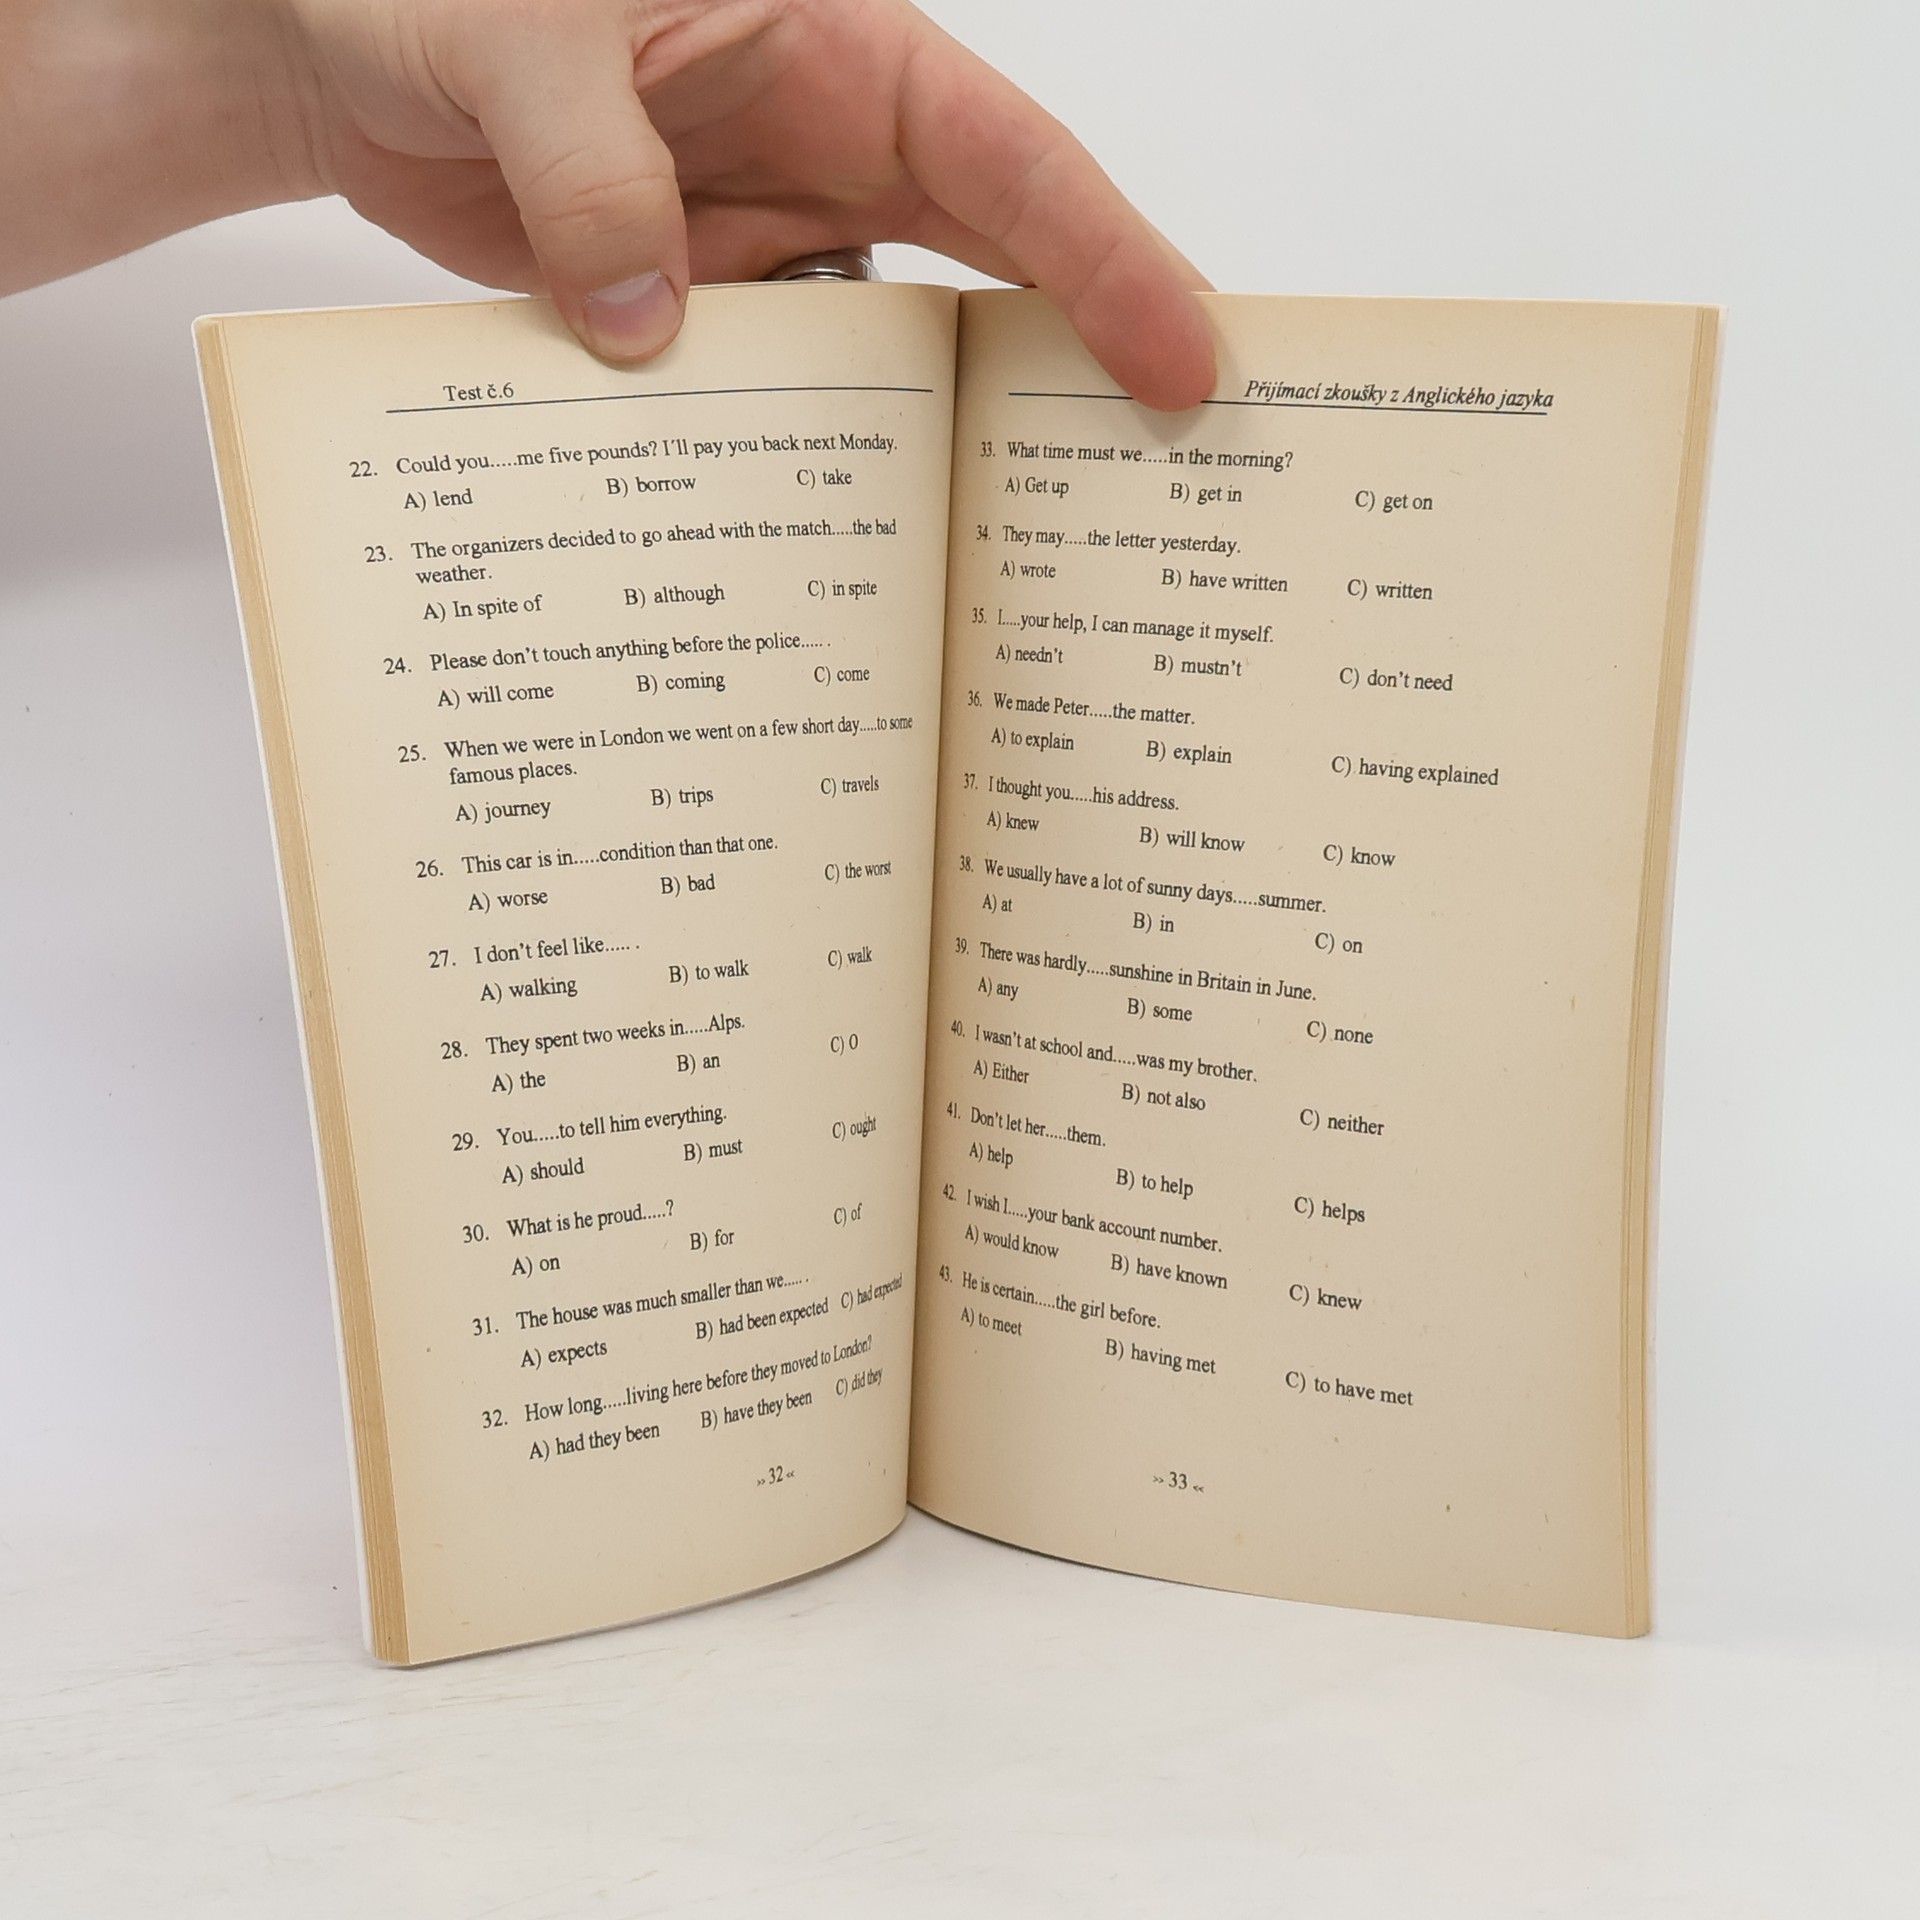 Test č.6
22. Could you.....me five pounds? I´ll pay you back next Monday.
A) lend B) borrow C) take
23. The organizers decided to go ahead with the match.....the bad
weather.
A) In spite of B) although C) in spite
24. Please don't touch anything before the police..... .
A) will come B) coming C) come
25. When we were in London we went on a few short day.....to some
famous places.
A) journey B) trips C) travels
26. This car is in.....condition than that one.
A) worse B) bad C) the worst
27. I don't feel like..... .
A) walking B) to walk C) walk
28. They spent two weeks in.....Alps.
A) the B) an C) 0
29. You.....to tell him everything.
A) should B) must C) ought
30. What is he proud.....?
A) on B) for C) of
31. The house was much smaller than we..... .
A) expects B) had been expected C) had expected
32. How long.....living here before they moved to London?
A) had they been B) have they been C) did they
» 32 «
Přijímací zkoušky z Anglického jazyka
33. What time must we.....in the morning?
A) Get up B) get in C) get on
34. They may.....the letter yesterday.
A) wrote B) have written C) written
35. I.....your help, I can manage it myself.
A) needn't B) mustn't C) don't need
36. We made Peter.....the matter.
A) to explain B) explain C) having explained
37. I thought you.....his address.
A) knew B) will know C) know
38. We usually have a lot of sunny days.....summer.
A) at B) in C) on
39. There was hardly.....sunshine in Britain in June.
A) any B) some C) none
40. I wasn't at school and.....was my brother.
A) Either B) not also C) neither
41. Don't let her.....them.
A) help B) to help C) helps
42. I wish I.....your bank account number.
A) would know B) have known C) knew
43. He is certain.....the girl before.
A) to meet B) having met C) to have met
» 33 «